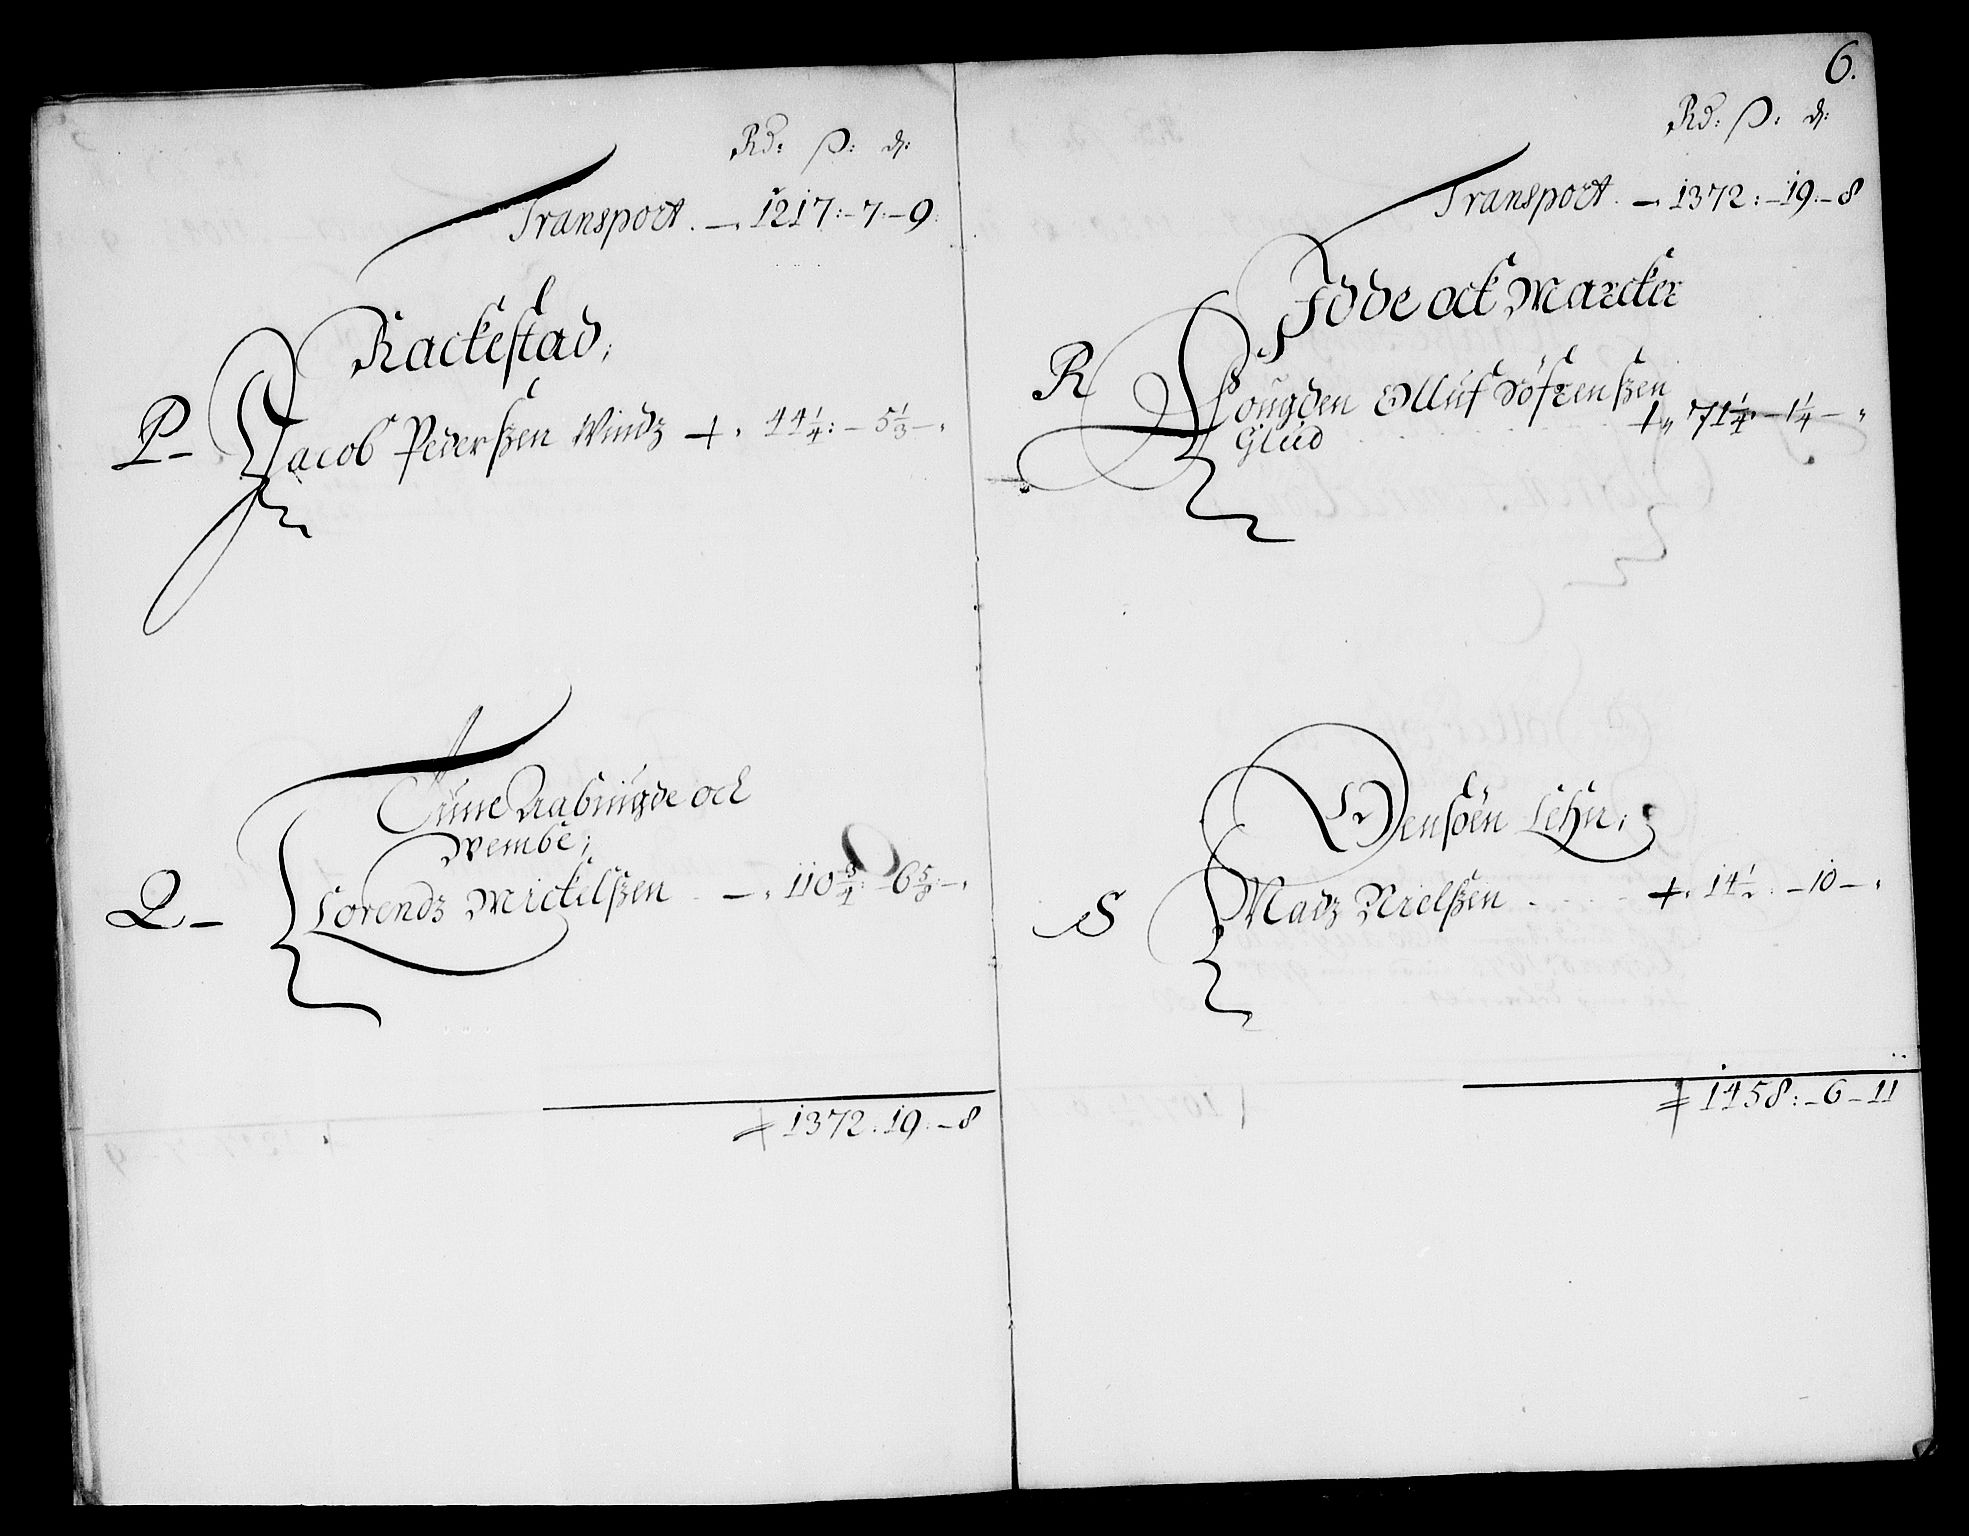 Rd: ß: d:
Transport. — 1217:–7–9
Rackestad;
P– Jacob Pederßen Windz + 44 1/4: – 5 1/3 –
Tune Aabyugde och
Wembe;
Q– Lorendz Mickelßen — 110 3/4: – 6 5/9: –
1372: 19: –8
6.
Rd: ß: d:
Transport. — 1372: –19: –8
Idde ock Marcker
R Fougden Olluf Söfrenßen
Glud + 71 1/4: – 1 1/4 –
Lehn;
S Madz Nielßen . . . . + 14 1/2 . – 10 –
1458: –6–11